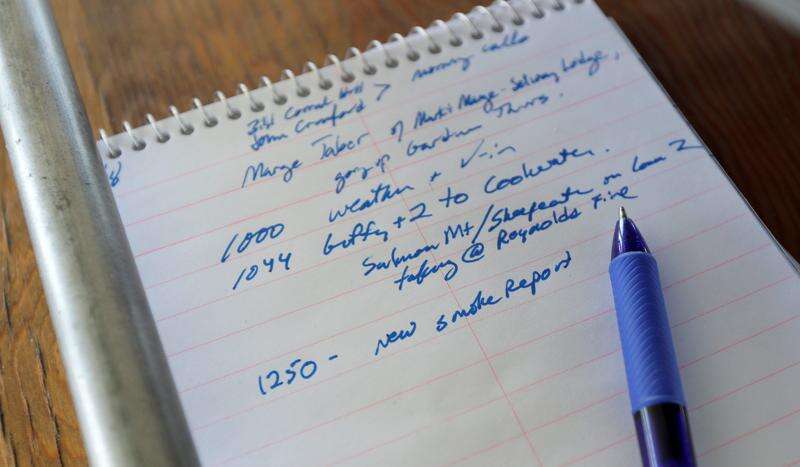 John Crawford > morning calls
Marge Tabor of Multi Marge - Selway Lodge,
going Garden Thurs.
1000 weather + √-in
1044 Buffy + 2 to Coolwater.
Salmon Mt / Sheepeater on Loon 2
talking @ Reynolds Fire
1250 - New Smoke Report